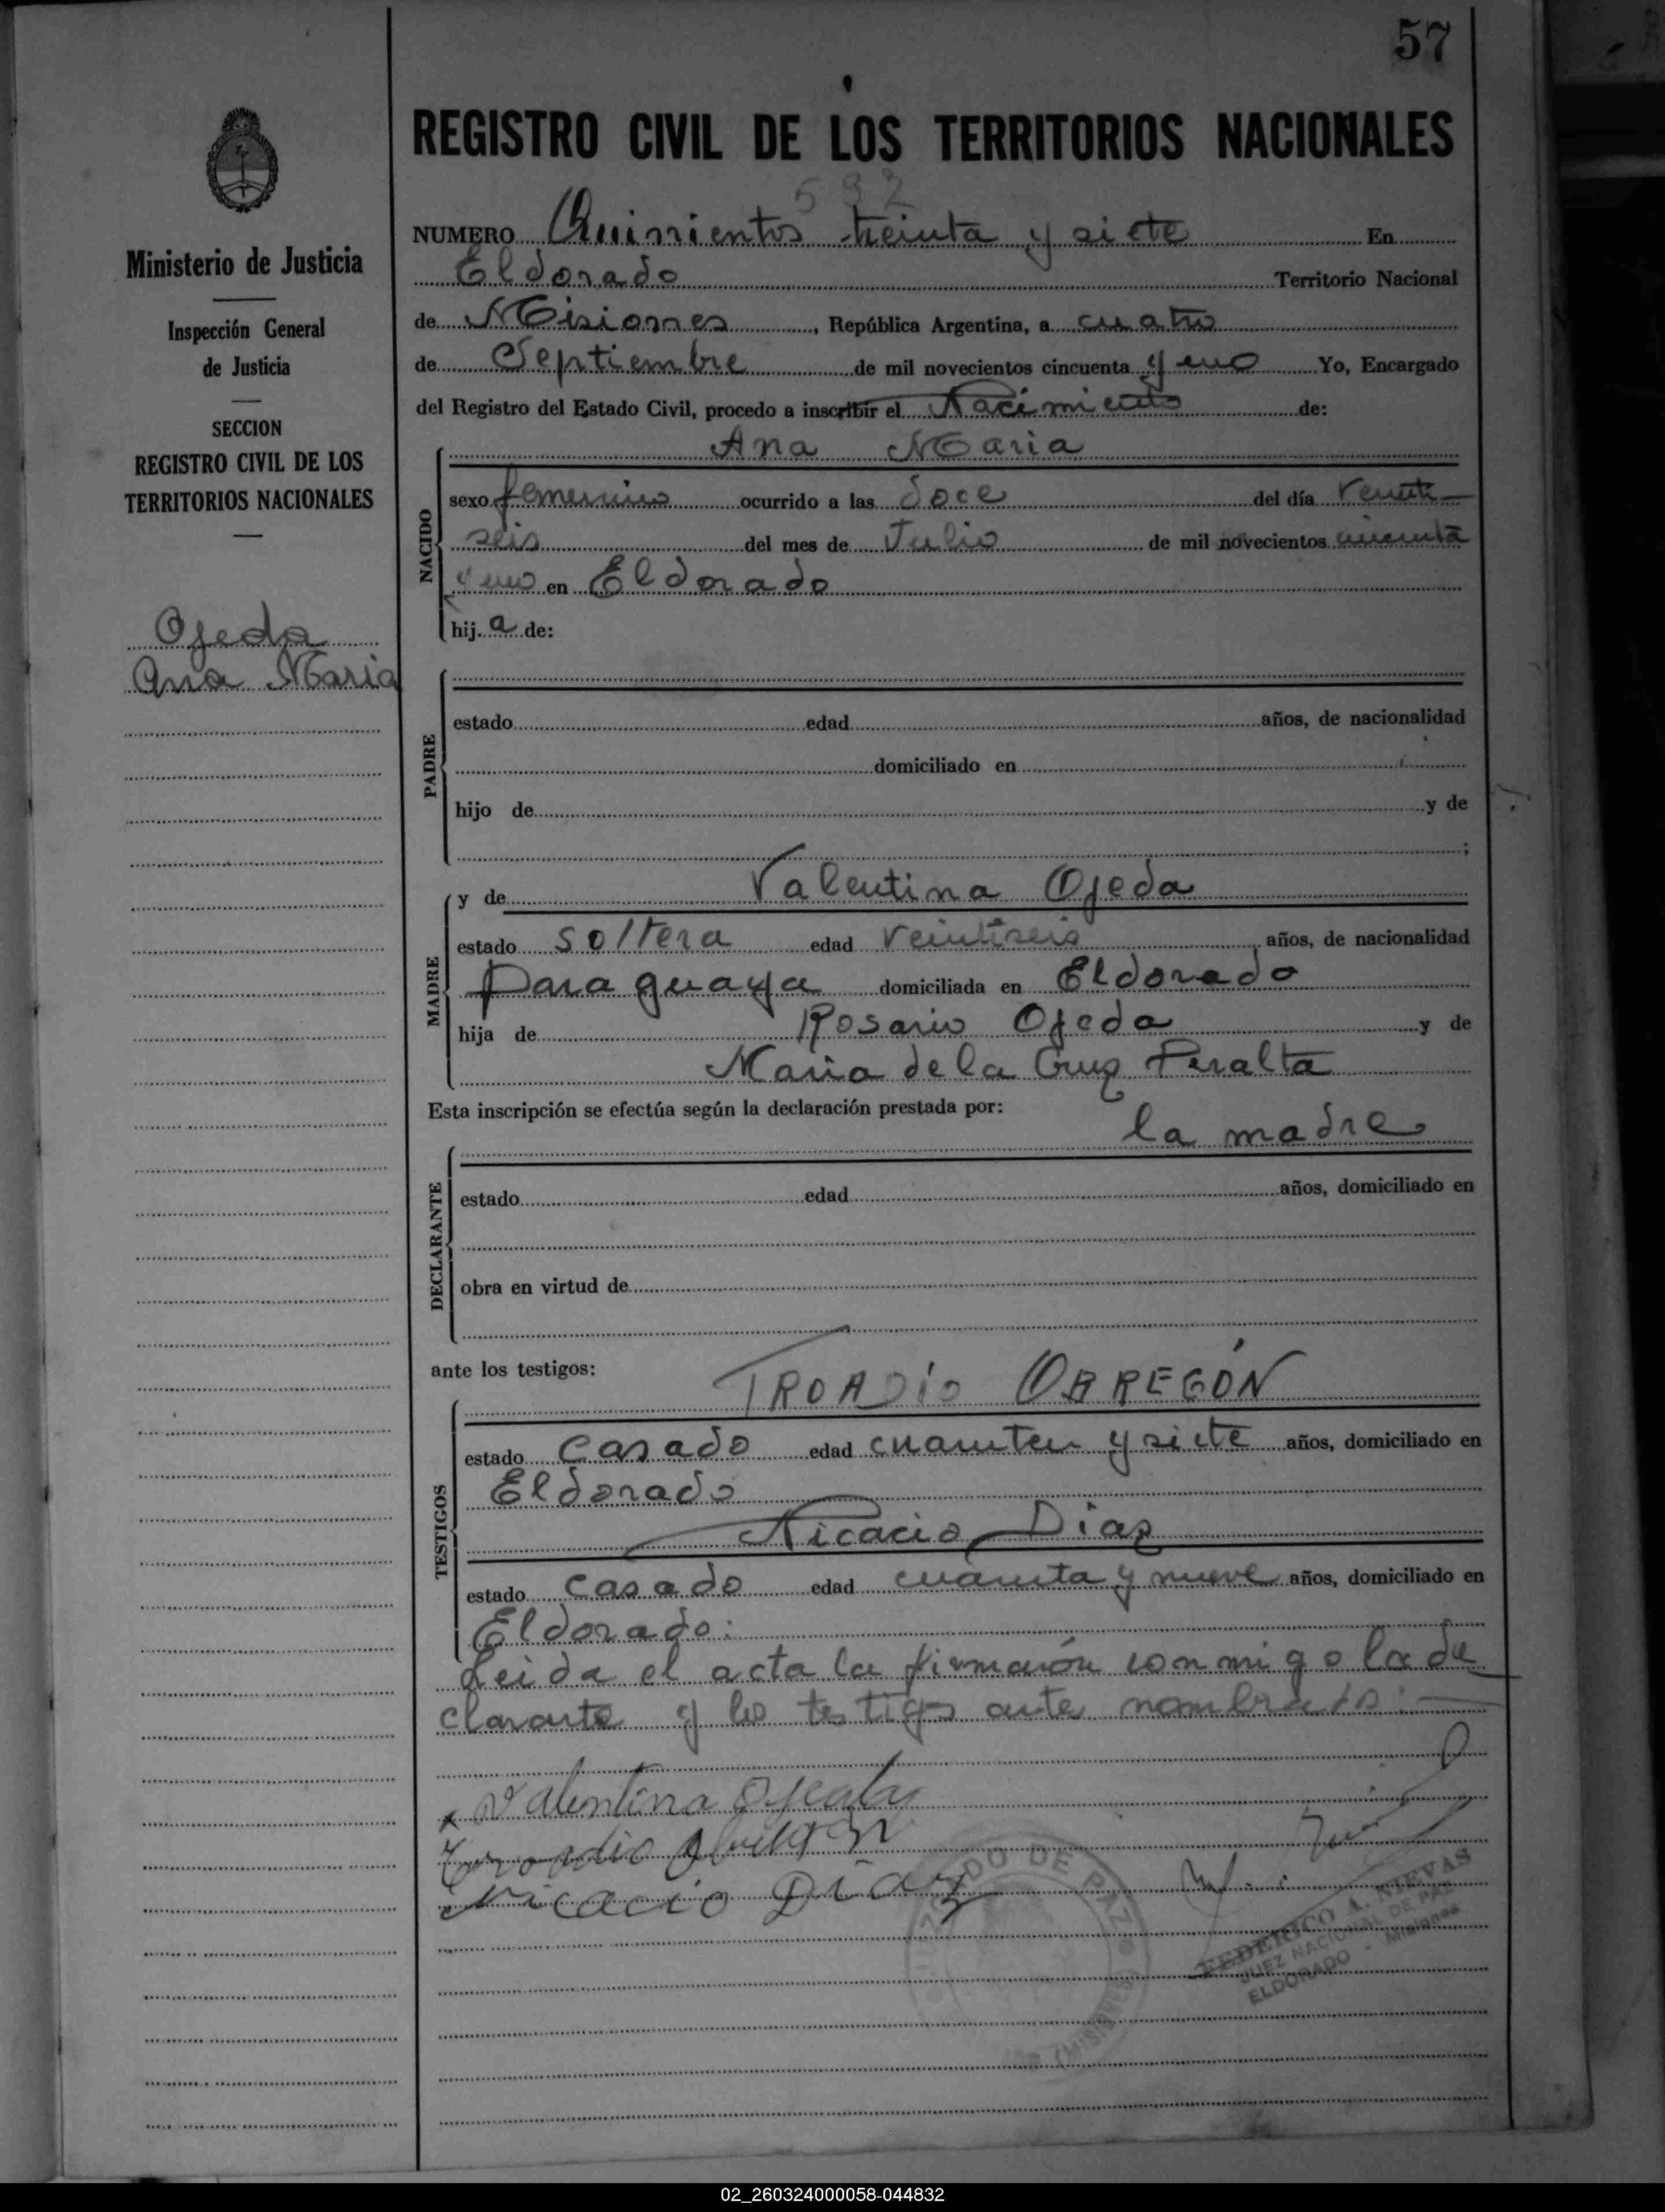 57
REGISTRO CIVIL DE LOS TERRITORIOS NACIONALES
NUMERO Quinientos treinta y siete En
Eldorado Territorio Nacional
de Misiones, República Argentina, a cuatro
de Septiembre de mil novecientos cincuenta y uno Yo, Encargado
del Registro del Estado Civil, procedo a inscribir el Nacimiento de:
Ana Maria
sexo femenino ocurrido a las doce del día veinti-
seis del mes de Julio de mil novecientos cincuenta
y uno en Eldorado
hij.a de:
NACIDO
estado edad años, de nacionalidad
domiciliado en
hijo de y de
;
PADRE
y de Valentina Ojeda
estado soltera edad veintiseis años, de nacionalidad
paraguaya domiciliada en Eldorado
hija de Rosario Ojeda y de
Maria de la Cruz Peralta
MADRE
Esta inscripción se efectúa según la declaración prestada por:
la madre
estado edad años, domiciliado en
obra en virtud de
DECLARANTE
ante los testigos:
TROADIO OBREGÓN
estado casado edad y siete años, domiciliado en
Eldorado
Nicacio Diaz
estado casado edad cuarenta y nueve años, domiciliado en
Eldorado.
TESTIGOS
Leida el acta la firmaron conmigo la de
clarante y los testigos ante nombrados.
x Valentina Ojeda
Troadio Obregon
Nicacio Diaz
JUZGADO DE PAZ
(MISIONES)
FEDERICO A. NIEVAS
JUEZ NACIONAL DE PAZ
ELDORADO - Misiones
Ministerio de Justicia
Inspección General
de Justicia
SECCION
REGISTRO CIVIL DE LOS
TERRITORIOS NACIONALES
Ojeda
Ana Maria
02_260324000058-044832